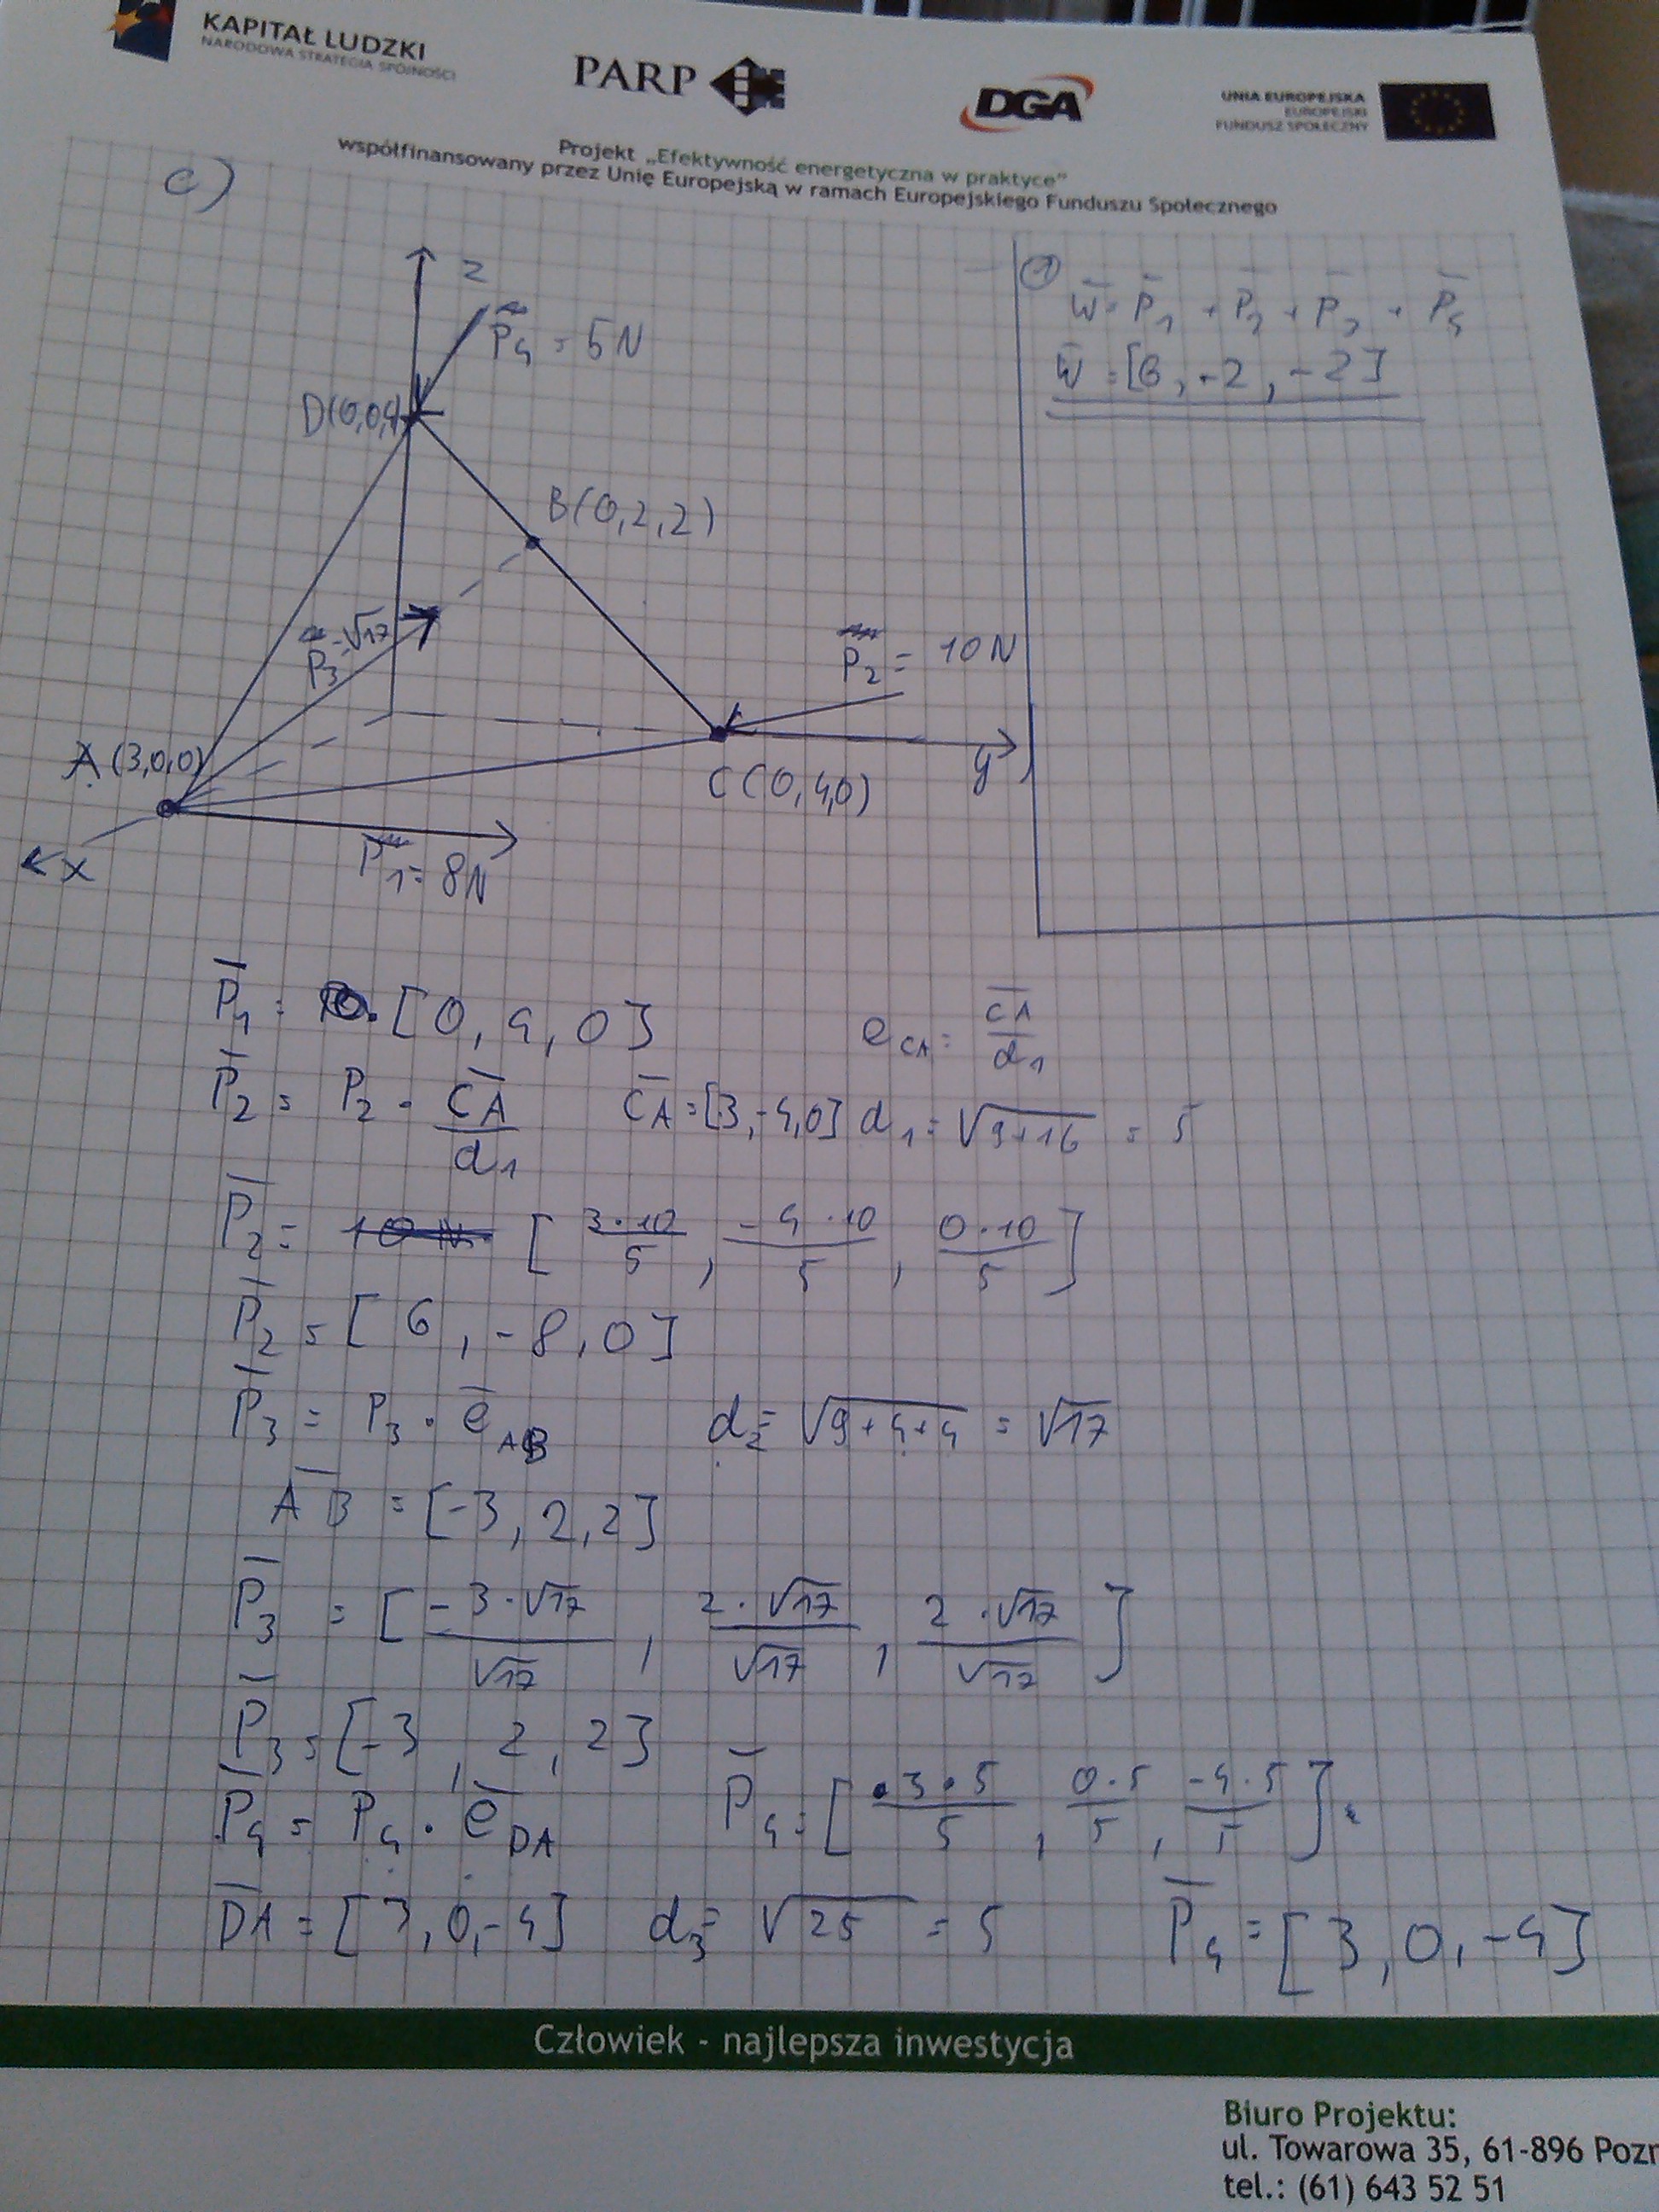 KAPITAŁ LUDZKI
NARODOWA STRATEGIA SPÓJNOŚCI
PARP
DGA
UNIA EUROPEJSKA
EUROPEJSKI
FUNDUSZ SPOŁECZNY
Projekt „Efektywność energetyczna w praktyce"
współfinansowany przez Unię Europejską w ramach Europejskiego Funduszu Społecznego
c)
z
P̄4 = 5N
D(0,0,4)
B(0,2,2)
P3 = √17
P2 = 10N
A(3,0,0)
C(0,4,0)
y
x
P1 = 8N
①
W̄ = P̄1 + P̄2 + P̄3 + P̄4
W̄ = [6, -2, -2]
P̄1 = [0, 4, 0] e CA = C̄A̅/d1
P̄2 = P2 · C̄A̅/d1 C̄A̅ = [3, -4, 0] d1 = √(9+16) = 5
P̄2 = [3·10/5, -4·10/5, 0·10/5]
P̄2 = [6, -8, 0]
P̄3 = P3 · ē AB d2 = √(9+4+4) = √17
A̅B̅ = [-3, 2, 2]
P̄3 = [-3·√17/√17, 2·√17/√17, 2·√17/√17]
P̄3 = [-3, 2, 2]
P̄4 = P4 · ē DA P̄4 = [3·5/5, 0·5/5, -4·5/5]
D̅A̅ = [3, 0, -4] d3 = √25 = 5 P̄4 = [3, 0, -4]
Człowiek - najlepsza inwestycja
Biuro Projektu:
ul. Towarowa 35, 61-896 Pozn
tel.: (61) 643 52 51